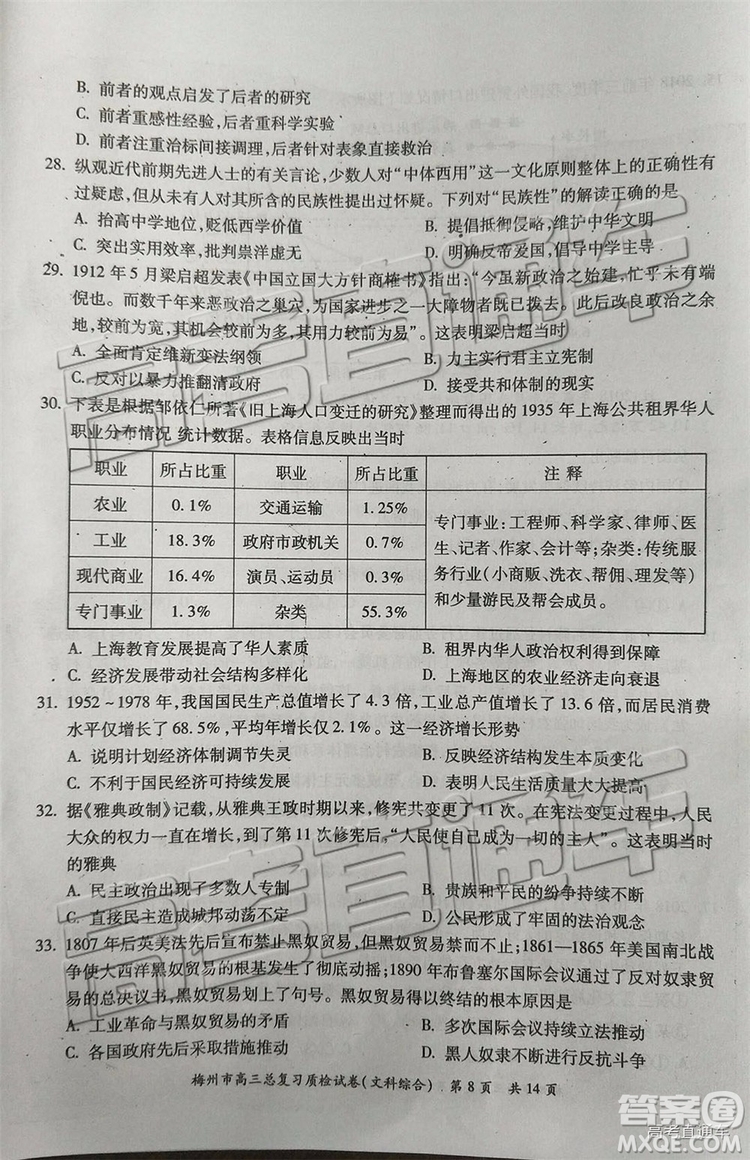 B. 前者的观点启发了后者的研究
C. 前者基于感性经验，后者重科学实验
D. 前者注重治标间接调理，后者针对表象直接救治
28. 纵观近代前期先进人士的有关言论，少数人对“中体西用”这一文化原则整体上的正确性有
过怀疑，但从未有人对其所含的民族性提出过怀疑。下列对“民族性”的解读正确的是
A. 抬高中学地位，贬低西学价值
B. 提倡抵御侵略，维护中华文明
C. 突出实用效率，批判崇洋虚无
D. 明确反帝爱国，倡导中学主导
29. 1912 年 5 月梁启超发表《中国立国大方针商榷书》指出：“今虽新政治之始建，忙乎未有端
倪也。而数千年来恶政治之巢穴，为国家进步之一大障物者既已拨去。此后改良政治之余
地，较前为宽，其用力较前为易”。这表明梁启超当时
A. 全面肯定维新变法纲领
B. 主张实行君主立宪制
C. 反对以暴力推翻清政府
D. 接受共和体制的现实
30. 下表是根据邹依仁所著《旧上海人口变迁的研究》整理而得出的 1935 年上海公共租界华人
职业分布情况 统计数据。表格信息反映出当时
职业 所占比重 职业 所占比重 注 释
农业 0.1% 交通运输 1.25%
工业 18.3% 政府市政机关 0.7%
现代商业 16.4% 演员、运动员 0.3%
专门事业 1.3% 杂类 55.3%
专门事业：工程师、科学家、律师、医
生、记者、作家、会计等；杂类：传统服
务行业（小商贩、洗衣、帮佣、理发等）
和少量游民及帮会成员。
A. 上海教育发展提高了华人素质
B. 租界内华人政治权利得到保障
C. 经济发展带动社会结构多样化
D. 上海地区的农业走向衰退
31. 1952～1978 年，我国国民生产总值增长了 4.3 倍，工业总产值增长了 13.6 倍，而居民消费
水平仅增长了 68.5%，平均年增长仅 2.1%。这一经济增长形势
A. 说明计划经济体制调节失灵
B. 反映经济结构发生本质变化
C. 不利于国民经济可持续发展
D. 表明人民生活水平大大提高
32. 据《雅典政制》记载，从雅典王政时期以来，修宪共变更了 11 次。在宪法变更过程中，人民
大众的权力一直在增长，到了第 11 次修宪后，“人民使自己成为一切的主人”。这表明当时
的雅典
A. 民主政治出现了多数人专制
B. 贵族和平民的纷争持续不断
C. 直接民主造成城邦动荡不定
D. 公民形成了牢固的法治观念
33. 1807 年后英美法先后宣布禁止黑奴贸易，但黑奴贸易屡禁而不止；1861—1865 年美国南北战
争使大西洋黑奴贸易的根基发生了彻底动摇；1890 年布鲁塞尔国际会议通过了反对奴隶贸
易的总决议书，黑奴贸易划上了句号。黑奴贸易得以终结的根本原因是
A. 工业革命与黑奴贸易的矛盾
B. 多次国际会议持续立法推动
C. 各国政府先后采取措施禁止
D. 黑人奴隶不断进行反抗斗争
梅州市高三总复习质检试卷（文科综合） 第 8 页 共 14 页
高考直通车
答案圈
高考直通车
MXQE.COM